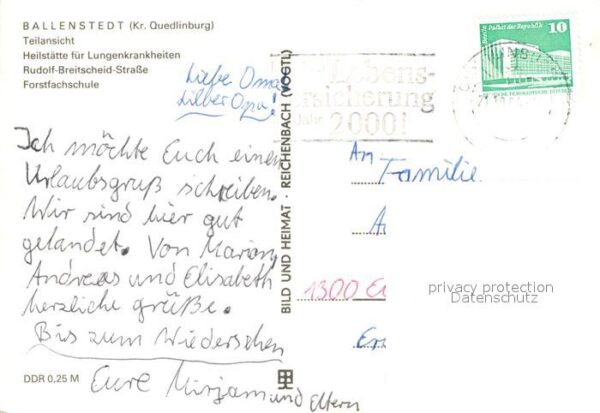 BALLENSTEDT (Kr. Quedlinburg)
Teilansicht
Heilstätte für Lungenkrankheiten
Rudolf-Breitscheid-Straße
Forstfachschule
Liebe Oma
Lieber Opa!
Ich möchte Euch einen
Urlaubsgruß schreiben.
Wir sind hier gut
gelandet. Von Marion,
Andreas und Elisabeth
herzliche grüße.
Bis zum Wiedersehen
Eure Mirjam und Eltern
DDR 0,25 M
BILD UND HEIMAT · REICHENBACH (VOGTL)
Lebens-
versicherung
Jahr 2000!
Berlin, Palast der Republik
10
DEUTSCHE DEMOKRATISCHE REPUBLIK
An
Familie
1300
privacy protection
Datenschutz